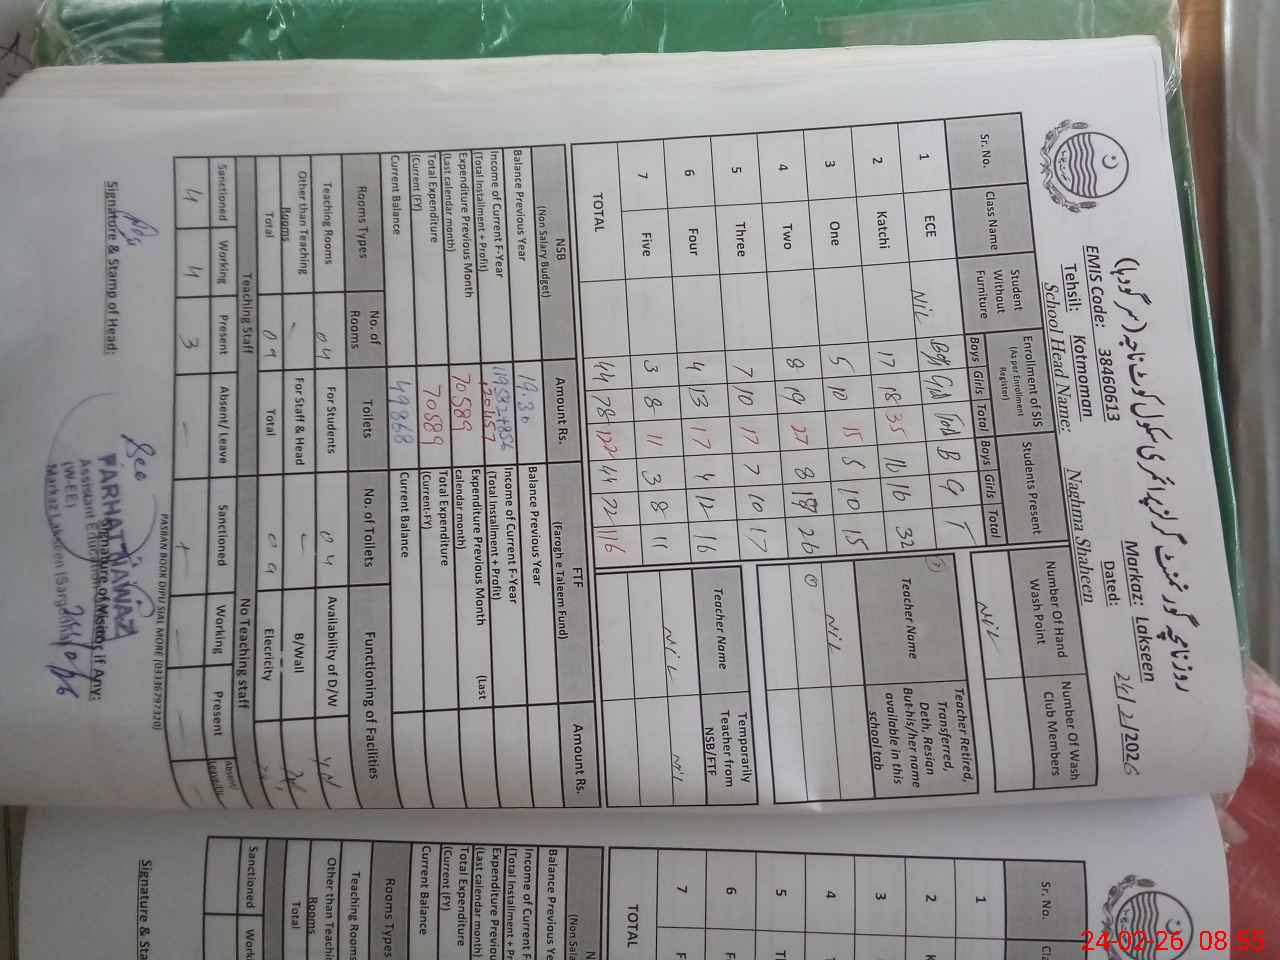 روزنامچہ گورنمنٹ گرلز پرائمری سکول کوٹ ناجہ (سرگودہا)
EMIS Code: 38460613 Markaz: Lakseen 24/2/2026
Tehsil: Kotmoman Dated:
School Head Name: Naghma Shaheen
Sr. No. Class Name Student Without Furniture Enrollment of SIS (As per Enrollment Register) Students Present Number Of Hand Wash Point Number Of Wash Club Members
Boys Girls Total Boys Girls Total
1 ECE Nil Boys Girls Total B G T Nil
2 Katchi 17 18 35 16 16 32
3 One 5 10 15 5 10 15
4 Two 8 19 27 8 18 26
5 Three 7 10 17 7 10 17
6 Four 4 13 17 4 12 16
7 Five 3 8 11 3 8 11
TOTAL 44 78 122 44 72 116
Teacher Name Teacher Retired, Transferred, Deth. Resian But his/her name available in this school tab
Nil
Teacher Name Temporarily Teacher from NSB/FTF
Nil Nil
NSB (Non Salary Budget) Amount Rs. FTF (Farogh e Taleem Fund) Amount Rs.
Balance Previous Year 19.30 Balance Previous Year
Income of Current F-Year (Total Installment + Profit) 119582+856 120457 Income of Current F-Year (Total Installment + Profit)
Expenditure Previous Month (Last calendar month) 70589 Expenditure Previous Month (Last calendar month)
Total Expenditure (Current FY) 70889 Total Expenditure (Current-FY)
Current Balance 49868 Current Balance
Rooms Types No. of Rooms Toilets No. of Toilets Functioning of Facilities
Teaching Rooms 04 For Students 04 Availability of D/W
Other than Teaching Rooms - For Staff & Head - B/Wall
Total 09 Total 09 Elecricity
Teaching Staff No Teaching staff
Sanctioned Working Present Absent/ Leave Sanctioned Working Present Absent/ Leave
4 4 3 -
PASBAN BOOK DIPU SIAL MORE (03336797320)
Signature & Stamp of Head: Signature of Visitor if Any:
See
FARHAT NAWAZ
Assistant Education
(W-EE)
Markaz Lakseen (Sargodha)
Sr. No.
1
2
3
4
5
6
7
TOTAL
Balance Previous Year
(Last calendar month)
Total Expenditure
(Current FY)
Current Balance
Rooms Types
Teaching Rooms
Rooms
Total
Sanctioned
24-02-26 08:55